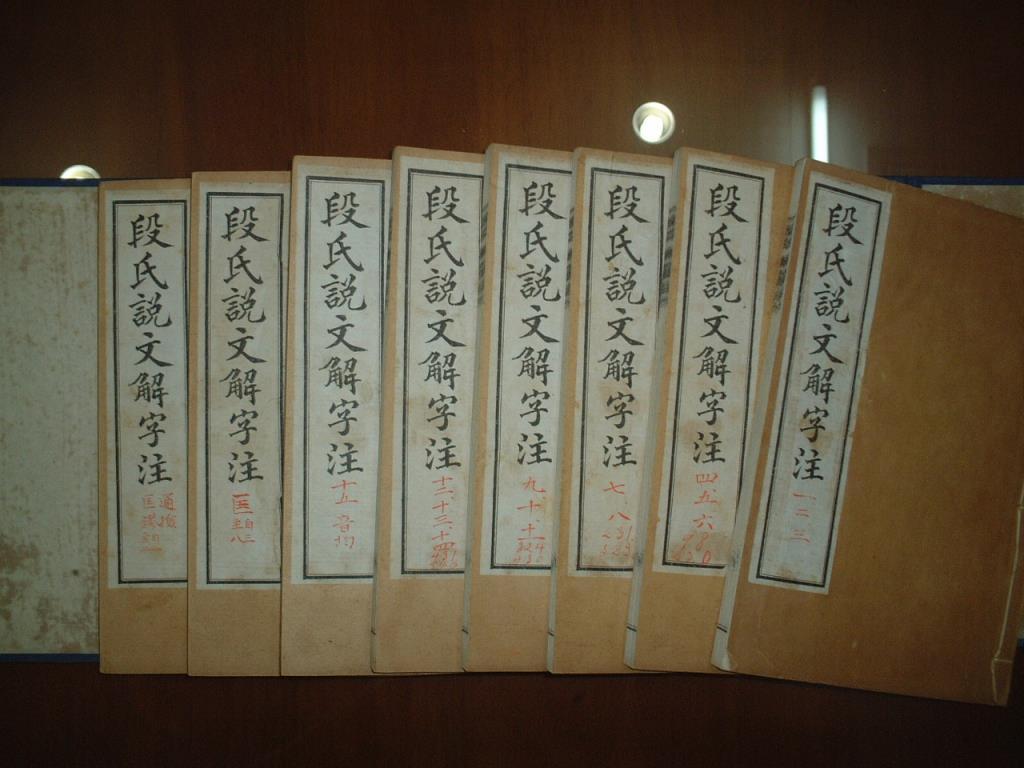 段氏説文解字注
一二三
段氏説文解字注
四五六
段氏説文解字注
七、八
段氏説文解字注
九、十、十一
段氏説文解字注
十二、十三、十四
段氏説文解字注
十五 音均
段氏説文解字注
段氏説文解字注
通檢